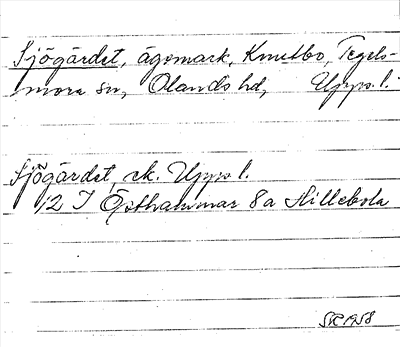 Sjögärdet, ägomark, Knutbo, Tegels-
mora sn, Olands hd, Upps. l.
Sjögärdet, ek. Upps l.
12 I Östhammar 8a Hillebola
1958